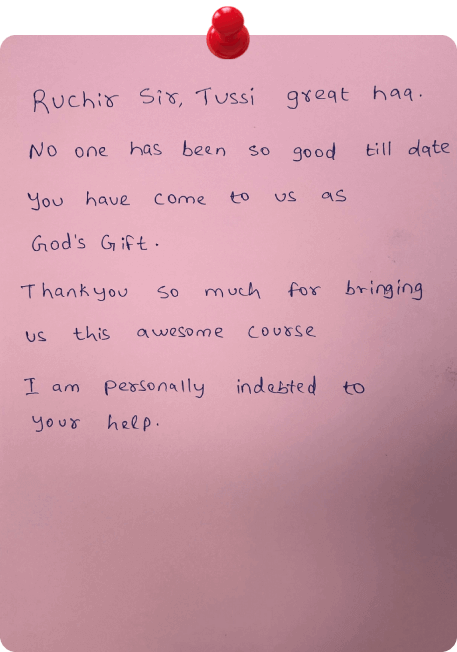 Ruchir Sir, Tussi great haa.
No one has been so good till date
You have come to us as
God's Gift.
Thankyou so much for bringing
us this awesome course
I am personally indebted to
your help.